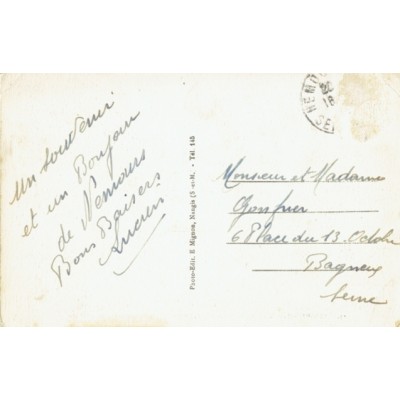 un souvenir
et un Bonjour
de Nemours
Bons Baisers
Lucien
Photo-Edit. E. Mignon, Nangis (S.-et-M. - Tél. 145
NEMO
18
SEI
Monsieur et Madame
6 Place du 13 Octobre
Bagneux
Seine